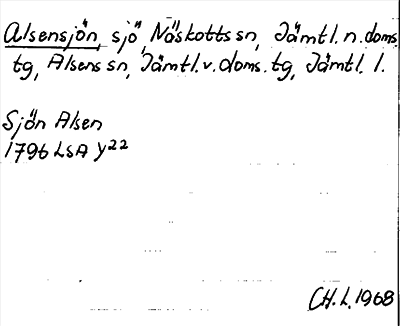 Alsensjön, sjö, Näskotts sn, Jämtl. n. doms.
tg, Alsens sn, Jämtl. v. doms. tg, Jämtl. l.
Sjön Alsen
1796 LSA Y22
CH. L. 1968